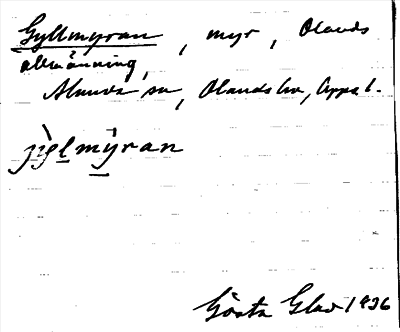 Gyllmyran, myr, Olands
allmänning,
Alunda sn, Olands hd, Upps. l.
jỳlmýran
Gösta Glad 1936